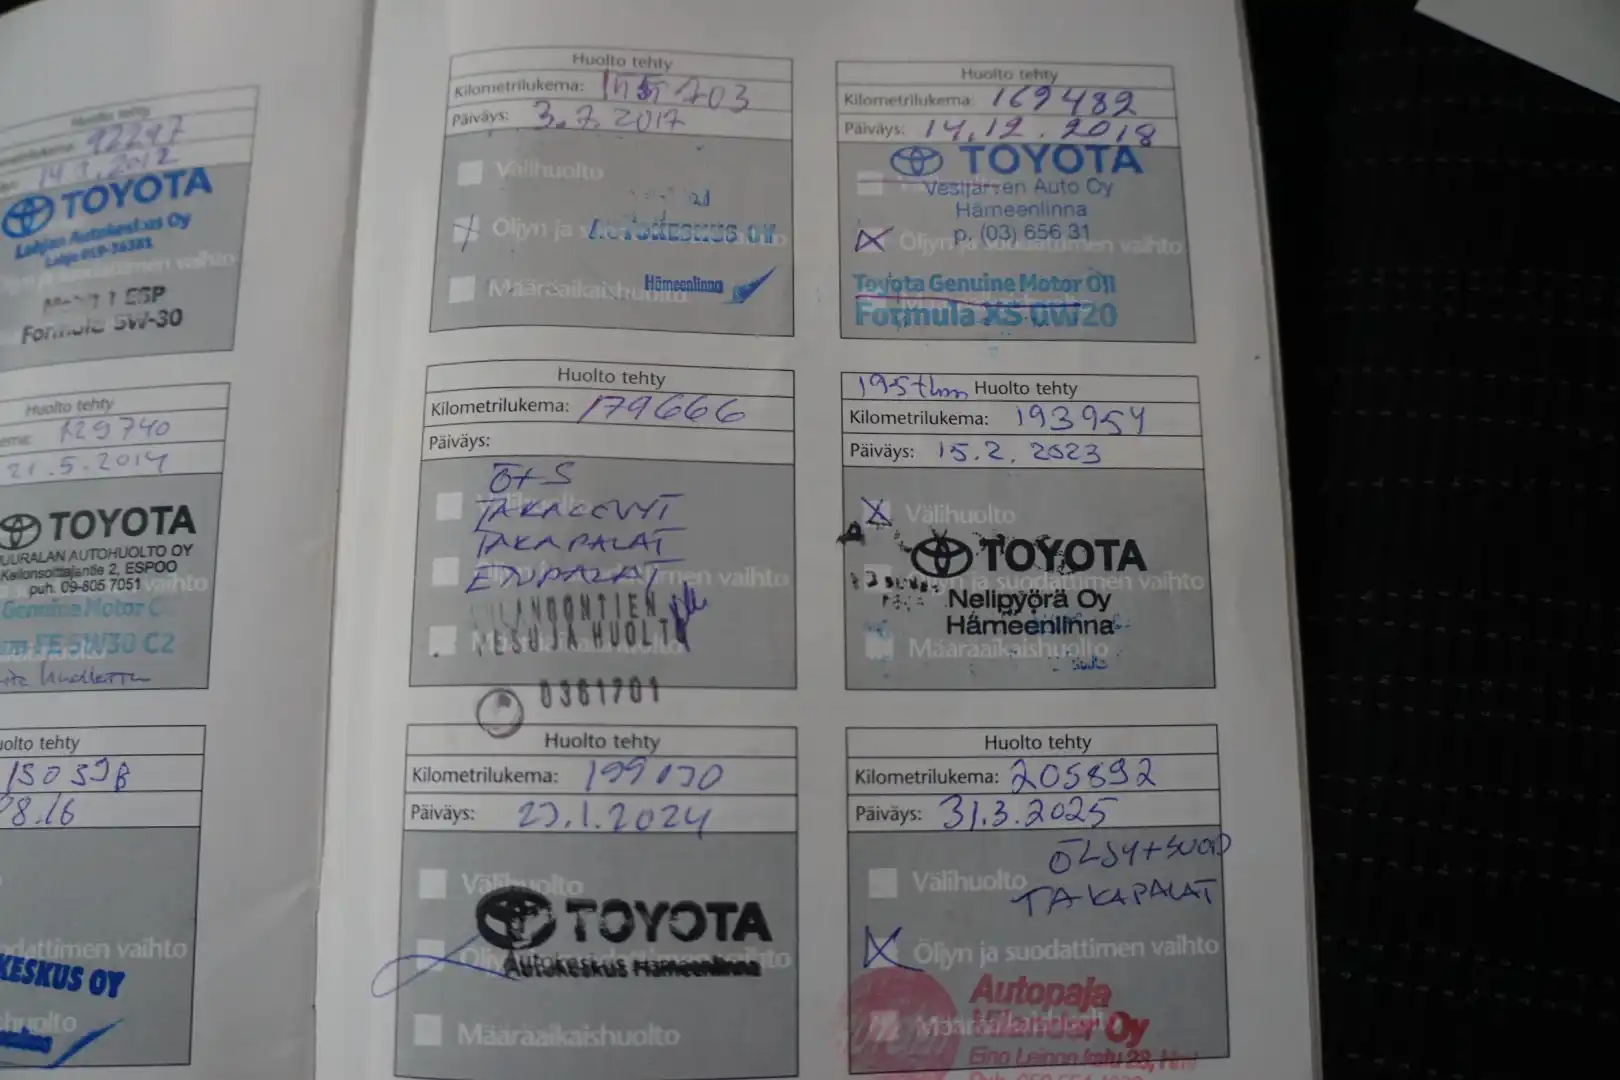 Huolto tehty
92297
14.1.2012
TOYOTA
Lohjan Autokeskus Oy
vaihto
Mobil 1 ESP
Formula 5W-30
Huolto tehty
129740
21.5.2014
TOYOTA
AUTOHUOLTO OY
2, ESPOO
puh. 09-805 7051
vaihto
Genuine Motor
5W30 C2
Huolto tehty
08.16
suodattimen vaihto
KESKUS OY
Huolto tehty
Kilometrilukema:
Päiväys: 3.7.2017
Välihuolto
Öljyn ja
AUTOKESKUS OY
Määräaikaishuolto
Hämeenlinna
Huolto tehty
Kilometrilukema: 179666
Päiväys:
Ö+S
TAKALEVYT
TAKAPALAT
ETUPALAT
vaihto
PESU JA HUOLTO
0361701
Huolto tehty
Kilometrilukema:
Päiväys: 23.1.2024
Välihuolto
TOYOTA
Autokeskus Hämeenlinna
Määräaikaishuolto
Huolto tehty
Kilometrilukema: 169482
Päiväys: 14.12.2018
TOYOTA
Vesijärven Auto Oy
Hämeenlinna
p. (03) 656 31
Öljyn ja suodattimen vaihto
Toyota Genuine Motor Oil
Formula XS 0W20
195tkm Huolto tehty
Kilometrilukema: 193954
Päiväys: 15.2.2023
Välihuolto
TOYOTA
Öljyn ja suodattimen vaihto
Nelipyörä Oy
Hämeenlinna
Määräaikaishuolto
Huolto tehty
Kilometrilukema: 205892
Päiväys: 31.3.2025
ÖLJY+SUOD
Välihuolto
TAKAPALAT
Öljyn ja suodattimen vaihto
Autopaja
Oy
Eino Leinon katu 23, Hml